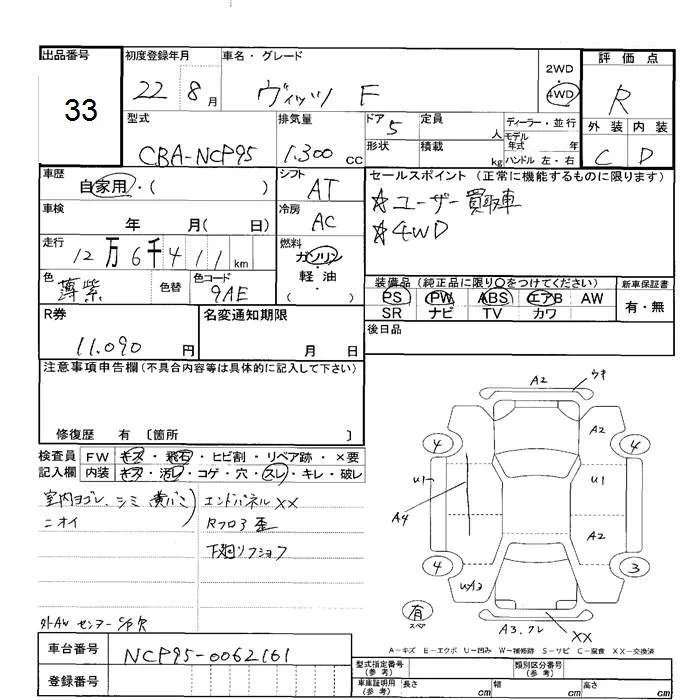 出品番号 初度登録年月 車名・グレード 2WD 評価点
33 22 8月 ヴィッツ F 4WD R
型式 排気量 ドア 5 定員 人 ディーラー・並行 外装 内装
CBA-NCP95 1.300 cc 形状 積載 kg モデル年式 年 ハンドル 左・右 C D
車歴 自家用・( ) シフト AT セールスポイント (正常に機能するものに限ります)
車検 年 月( 日) 冷房 AC ☆ユーザー買取車
☆4WD
走行 12万6千411km 燃料 ガソリン・軽油・( )
色 薄紫 色替 色コード 9AE
装備品(純正品に限り○をつけてください) 新車保証書
PS PW ABS エアB AW 有・無
SR ナビ TV カワ
R券 11,090円 名変通知期限 月 日 後日品
注意事項申告欄(不具合内容等は具体的に記入して下さい)
修復歴 有 〔箇所 〕
検査員 FW キズ・飛石・ヒビ割・リペア跡・×要
記入欄 内装 キズ・汚レ・コゲ・穴・スレ・キレ・破レ
室内ヨゴレ、シミ エンドパネルXX
ニオイ
下廻リ
車台番号 NCP95-0062161
登録番号
A2 ウキ
A2
4 4
U1 U1
A4
A2
4 3
UA2
有 スペア
A3. ワレ XX
A−キズ E−エクボ U−凹み W−補修跡 S−サビ C−腐食 XX−交換済
型式指定番号(参考) 類別区分番号(参考)
車庫証明用(参考) 長さ cm 幅 cm 高さ cm